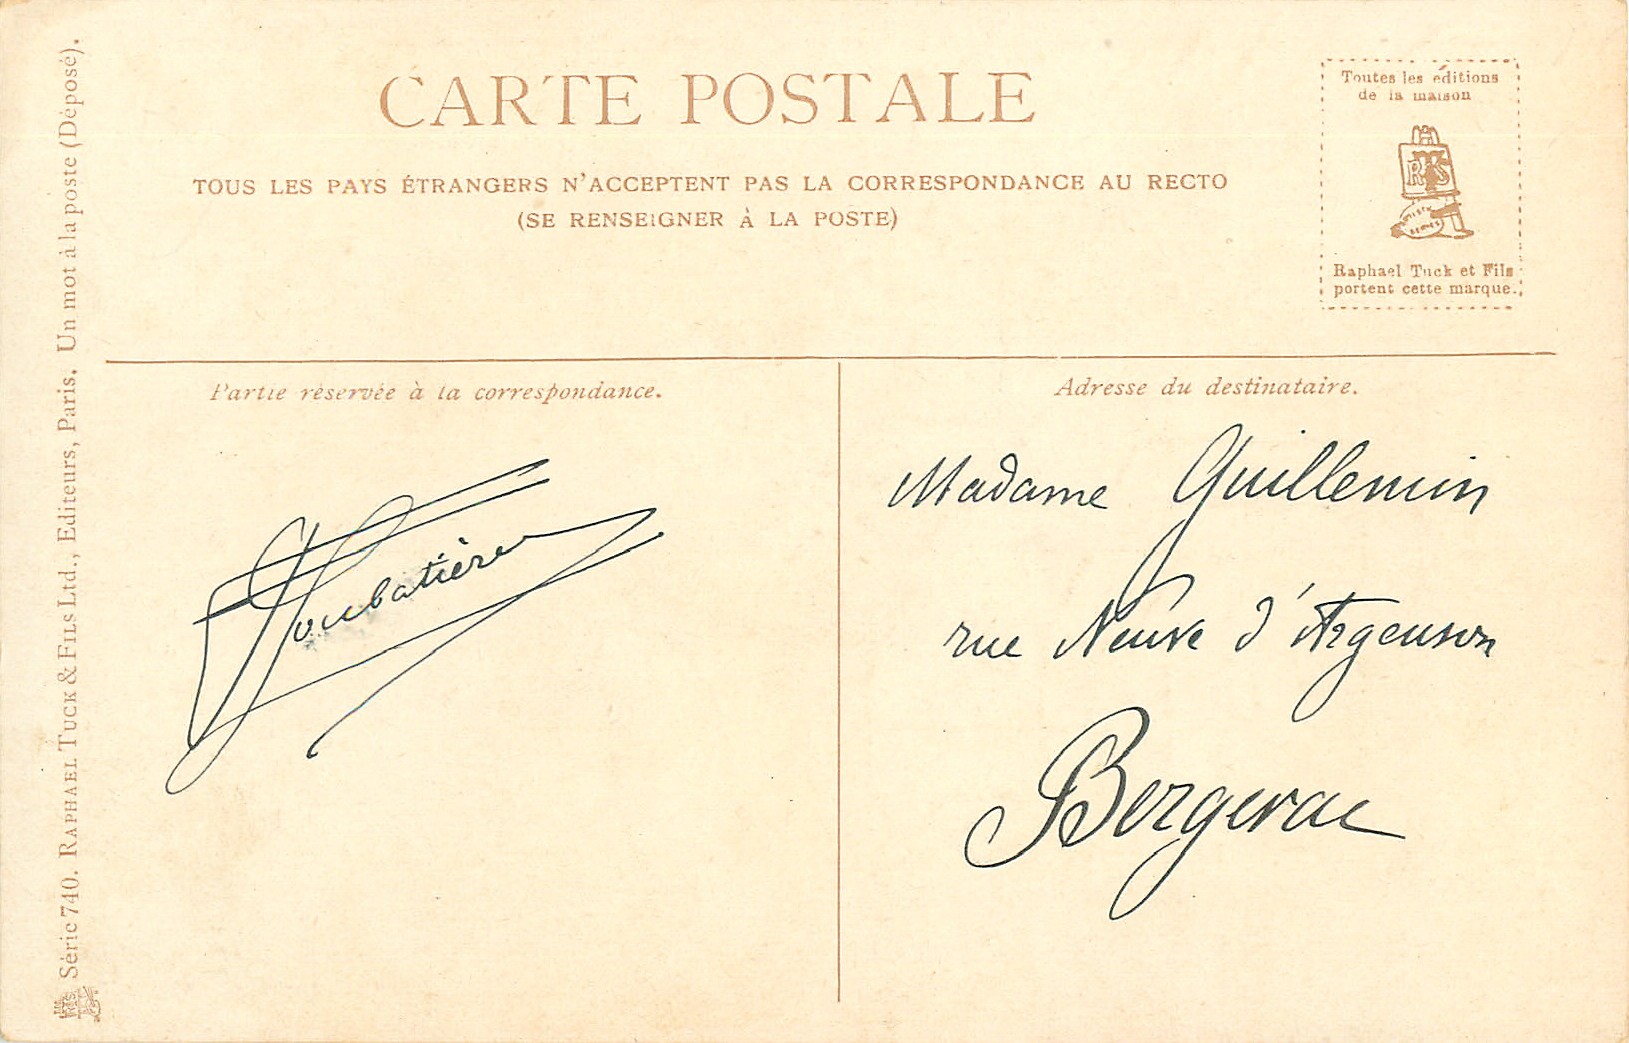 CARTE POSTALE
TOUS LES PAYS ÉTRANGERS N'ACCEPTENT PAS LA CORRESPONDANCE AU RECTO
(SE RENSEIGNER À LA POSTE)
Toutes les éditions
de la maison
Raphael Tuck et Fils
portent cette marque.
Série 740. RAPHAEL TUCK & FILS Ltd., Editeurs, Paris. Un mot à la poste (Déposé).
Partie réservée à la correspondance.
Adresse du destinataire.
Madame Guillemin
rue Neuve d'Argenson
Bergerac